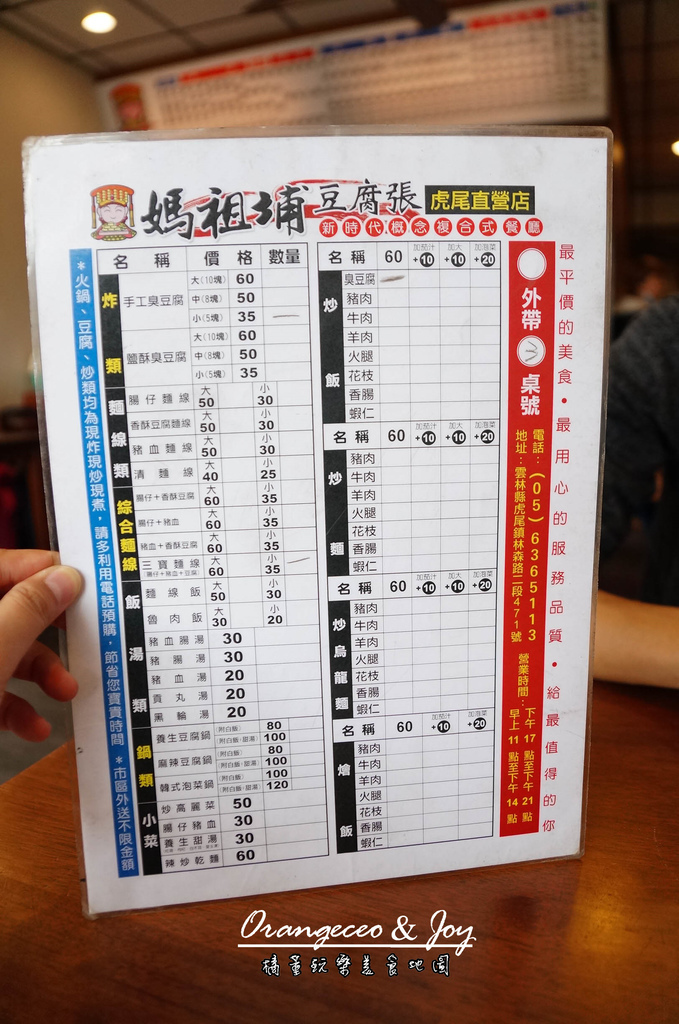 媽祖埔豆腐張 虎尾直營店
新時代概念複合式餐廳
*火鍋、豆腐、炒類均為現炸現炒現煮，請多利用電話預購，節省您寶貴時間 *市區外送不限金額
名稱 價格 數量
炸類
手工臭豆腐 大(10塊) 60
中(8塊) 50
小(5塊) 35
鹽酥臭豆腐 大(10塊) 60
中(8塊) 50
小(5塊) 35
麵線類
腸仔麵線 大50 小30
香酥豆腐麵線 大50 小30
豬血麵線 大50 小30
清麵線 大40 小25
綜合麵線
腸仔+香酥豆腐 大60 小35
腸仔+豬血 大60 小35
豬血+香酥豆腐 大60 小35
三寶麵線 (腸仔+豬血+豆腐) 大60 小35
飯
麵線飯 大50 小30
魯肉飯 大30 小20
湯類
豬血腸湯 30
豬腸湯 30
豬血湯 20
貢丸湯 20
黑輪湯 20
鍋類
養生豆腐鍋 (附白飯) 80
(附白飯·甜湯) 100
麻辣豆腐鍋 (附白飯) 80
(附白飯·甜湯) 100
韓式泡菜鍋 (附白飯) 100
(附白飯·甜湯) 120
小菜
炒高麗菜 50
腸仔豬血 30
養生甜湯 30
辣炒乾麵 60
名稱 60 加茄汁+10 加大+10 加泡菜+20
炒飯
臭豆腐
豬肉
牛肉
羊肉
火腿
花枝
香腸
蝦仁
名稱 60 加茄汁+10 加大+10 加泡菜+20
炒麵
豬肉
牛肉
羊肉
火腿
花枝
香腸
蝦仁
名稱 60 加茄汁+10 加大+10 加泡菜+20
炒烏龍麵
豬肉
牛肉
羊肉
火腿
花枝
香腸
蝦仁
名稱 60 加茄汁+10 加大+10 加泡菜+20
燴飯
豬肉
牛肉
羊肉
火腿
花枝
香腸
蝦仁
外帶
桌號
電話：(05)6365113
地址：雲林縣虎尾鎮林森路二段471號
營業時間：早上11點至下午14點
下午17點至下午21點
最平價的美食•最用心的服務品質•給最值得的你
Orangeceo & Joy
橘董玩樂美食地圖